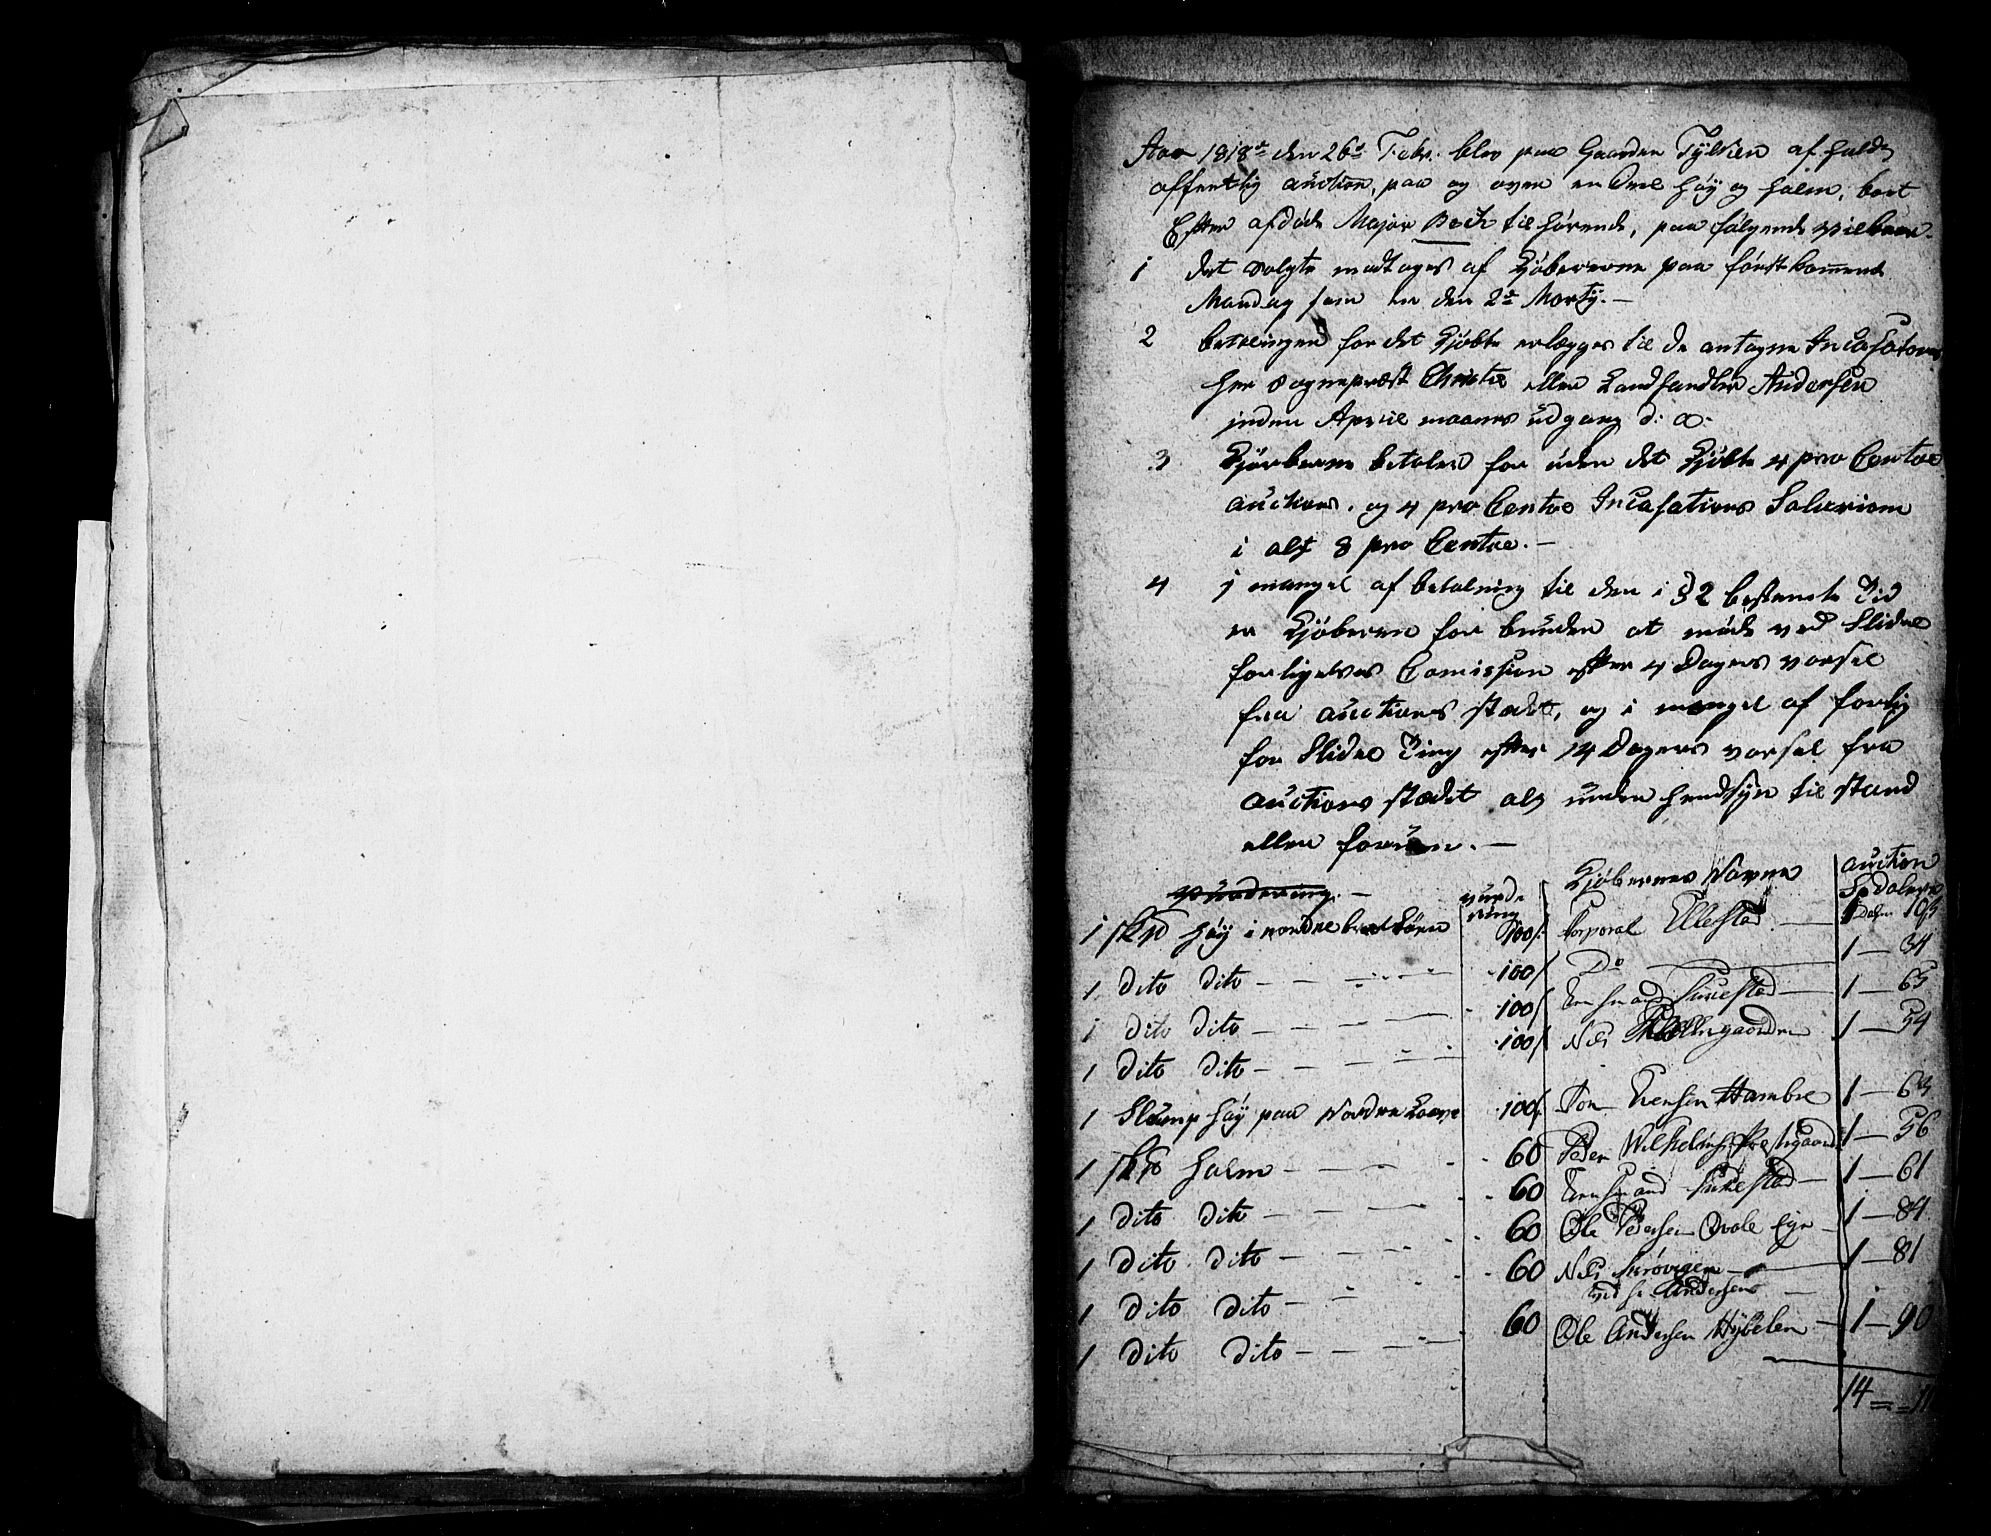 Aar 1818de den 26de Febr. blev paa Gaarden Tylken af holdt
offentlig auction, paa og over en Deel høy og halm, bort
Efter afdøde Major Bech til hørende, paa følgende vilkaar.
1 det solgte modtages af Kjøberene paa førstkomende
Mandag som er den 2de Marty. —
2 betalingen for det Kjøbte erlægges til de antagne Incasatores
her Sognepræst Christie eller Landhandler Andersen
inden April maaneds udgang d: a:
3 Kjøberne betaler for uden det Kjøbte 4 pro Centoe
auctions, og 4 pro Centoe Incasations Salarium
i alt 8 pro Centoe. —
4 i mangel af betalning til den i § 2 bestemte Tid
er Kjøberen for bunden at møde ved Slidre
forligelses Comission efter 4 Dagers varsel
fra auctions stædet, og i mangel af forlig
for Slidre Ting efter 14 Dagers varsel fra
auctions stædet als uden hendsyn til stand
eller forum. —
vurdering. — vurdering Kjøbernes Navne auction Spdalers
1 skp høy i nordre 100/ Corporal Ellestad — 1 daler 103
1 Dito Dito — — — 100/ Do — 1 — 34
1 Dito Dito — — — 100/ — 1 — 65
1 Dito Dito — — — 100/ Nils — 1 — 54
1 Slump høy paa Nordre Laave 100/ Jon Hambre 1 — 63
1 skp halm — — — 60 Peder 1 — 56
1 Dito Dito — — — 60 — 1 — 61
1 Dito Dito — — — 60 Ole Pedersen Qvale — 1 — 84
1 Dito Dito — — — 60 Nils — 1 — 81
ved hr Andersen —
1 Dito Dito — — — 60 Ole Andersen — 1 — 90
14 = = 11